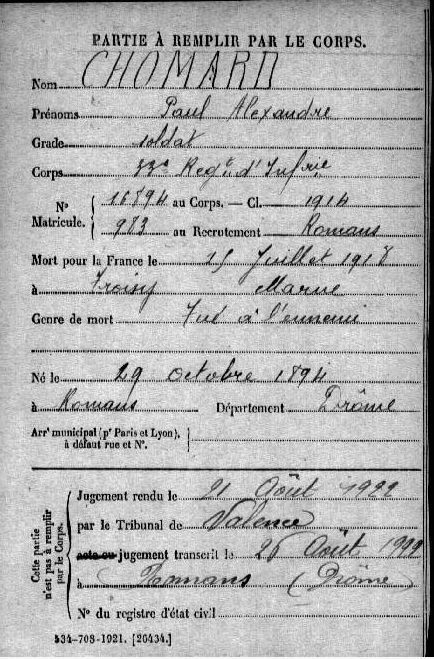 PARTIE À REMPLIR PAR LE CORPS.
Nom CHOMARD
Prénoms Paul Alexandre
Grade soldat
Corps 33e Regt d'Infrie
N° Matricule. 16894 au Corps. — Cl. 1914
983 au Recrutement Romans
Mort pour la France le 15 Juillet 1918
à Troissy Marne
Genre de mort Tué à l'ennemi
Né le 29 Octobre 1894
à Romans Département Drôme
Arrt municipal (pr Paris et Lyon),
à défaut rue et N°.
Cette partie n'est pas à remplir par le Corps.
Jugement rendu le 21 Août 1922
par le Tribunal de Valence
acte ou jugement transcrit le 26 Août 1922
à Romans (Drôme)
N° du registre d'état civil
534-708-1921. [26434.]